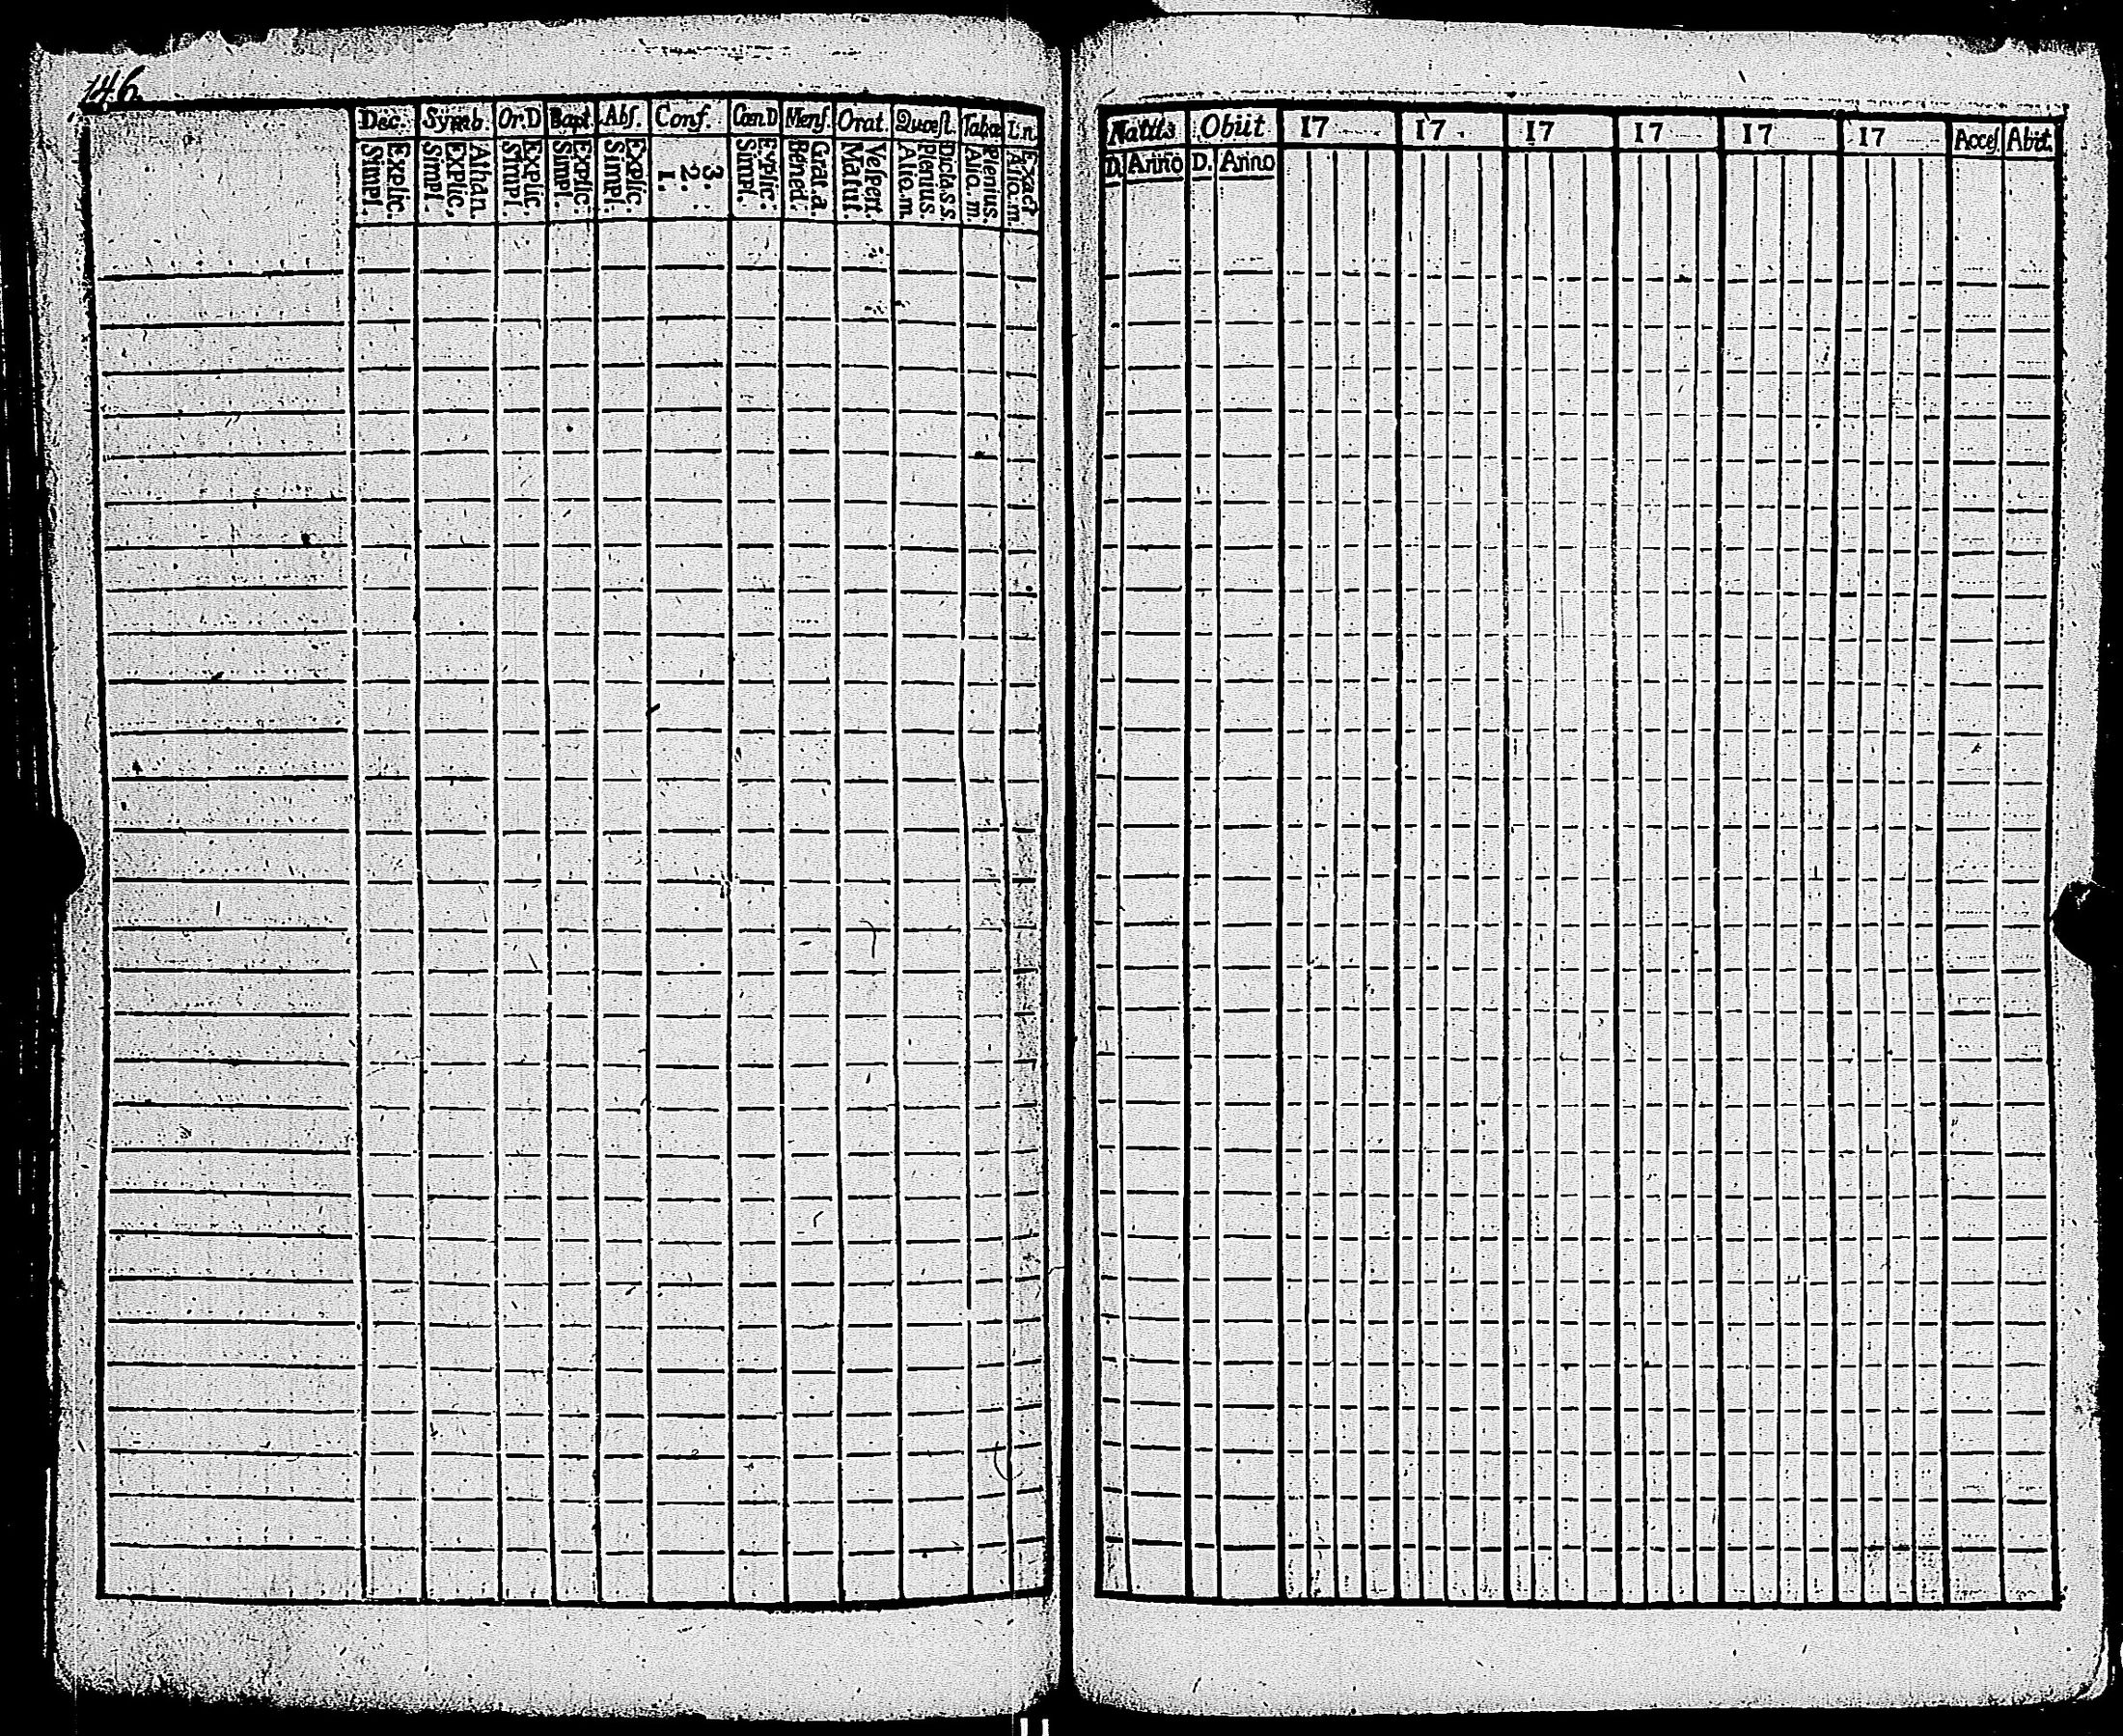 146
Dec. Symb. Or.D Bapt. Abſ. Conf. Cœn.D Menſ. Orat. Quœſt. Taba L.n
Simpl. Explic. Simpl. Explic. Athan. Simpl. Explic. Simpl. Explic. Simpl. Explic. 1. 2. 3. Simpl. Explic. Bened. Grat. a. Matut. Veſpert. Alio. m. Plenius. Dicta. s.s. Alio. m. Plenius. Alio. m. Exact
Natus Obiit 17 17 17 17 17 17 Acceſ. Abit.
D. Anno D. Anno